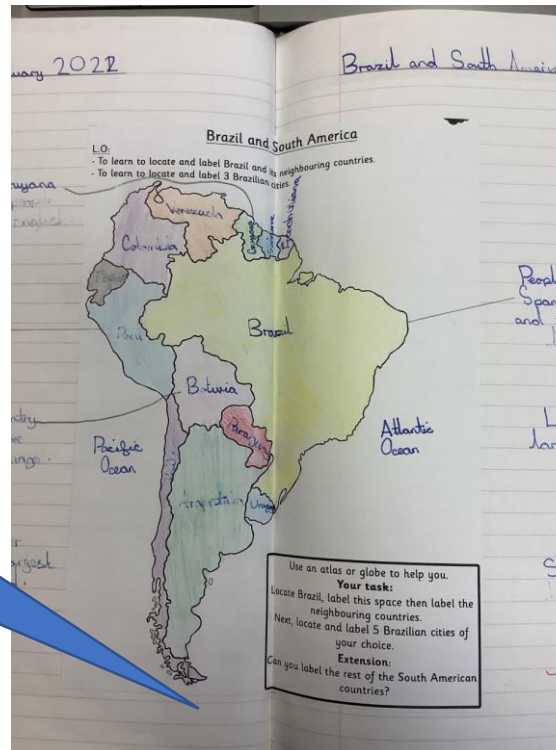 uary 2022
Brazil and South Americ
Brazil and South America
L.O:
- To learn to locate and label Brazil and its neighbouring countries.
- To learn to locate and label 3 Brazilian cities.
uyana
people
Venezuela
Guyana
Suriname
Colombia
Peru
Brazil
Peopl
Span
and
Bolivia
ntry
Paraguay
Pacific
Ocean
Atlantic
Ocean
L
lar
Argentina
Urugu
argest
S
Use an atlas or globe to help you.
Your task:
Locate Brazil, label this space then label the
neighbouring countries.
Next, locate and label 5 Brazilian cities of
your choice.
Extension:
Can you label the rest of the South American
countries?